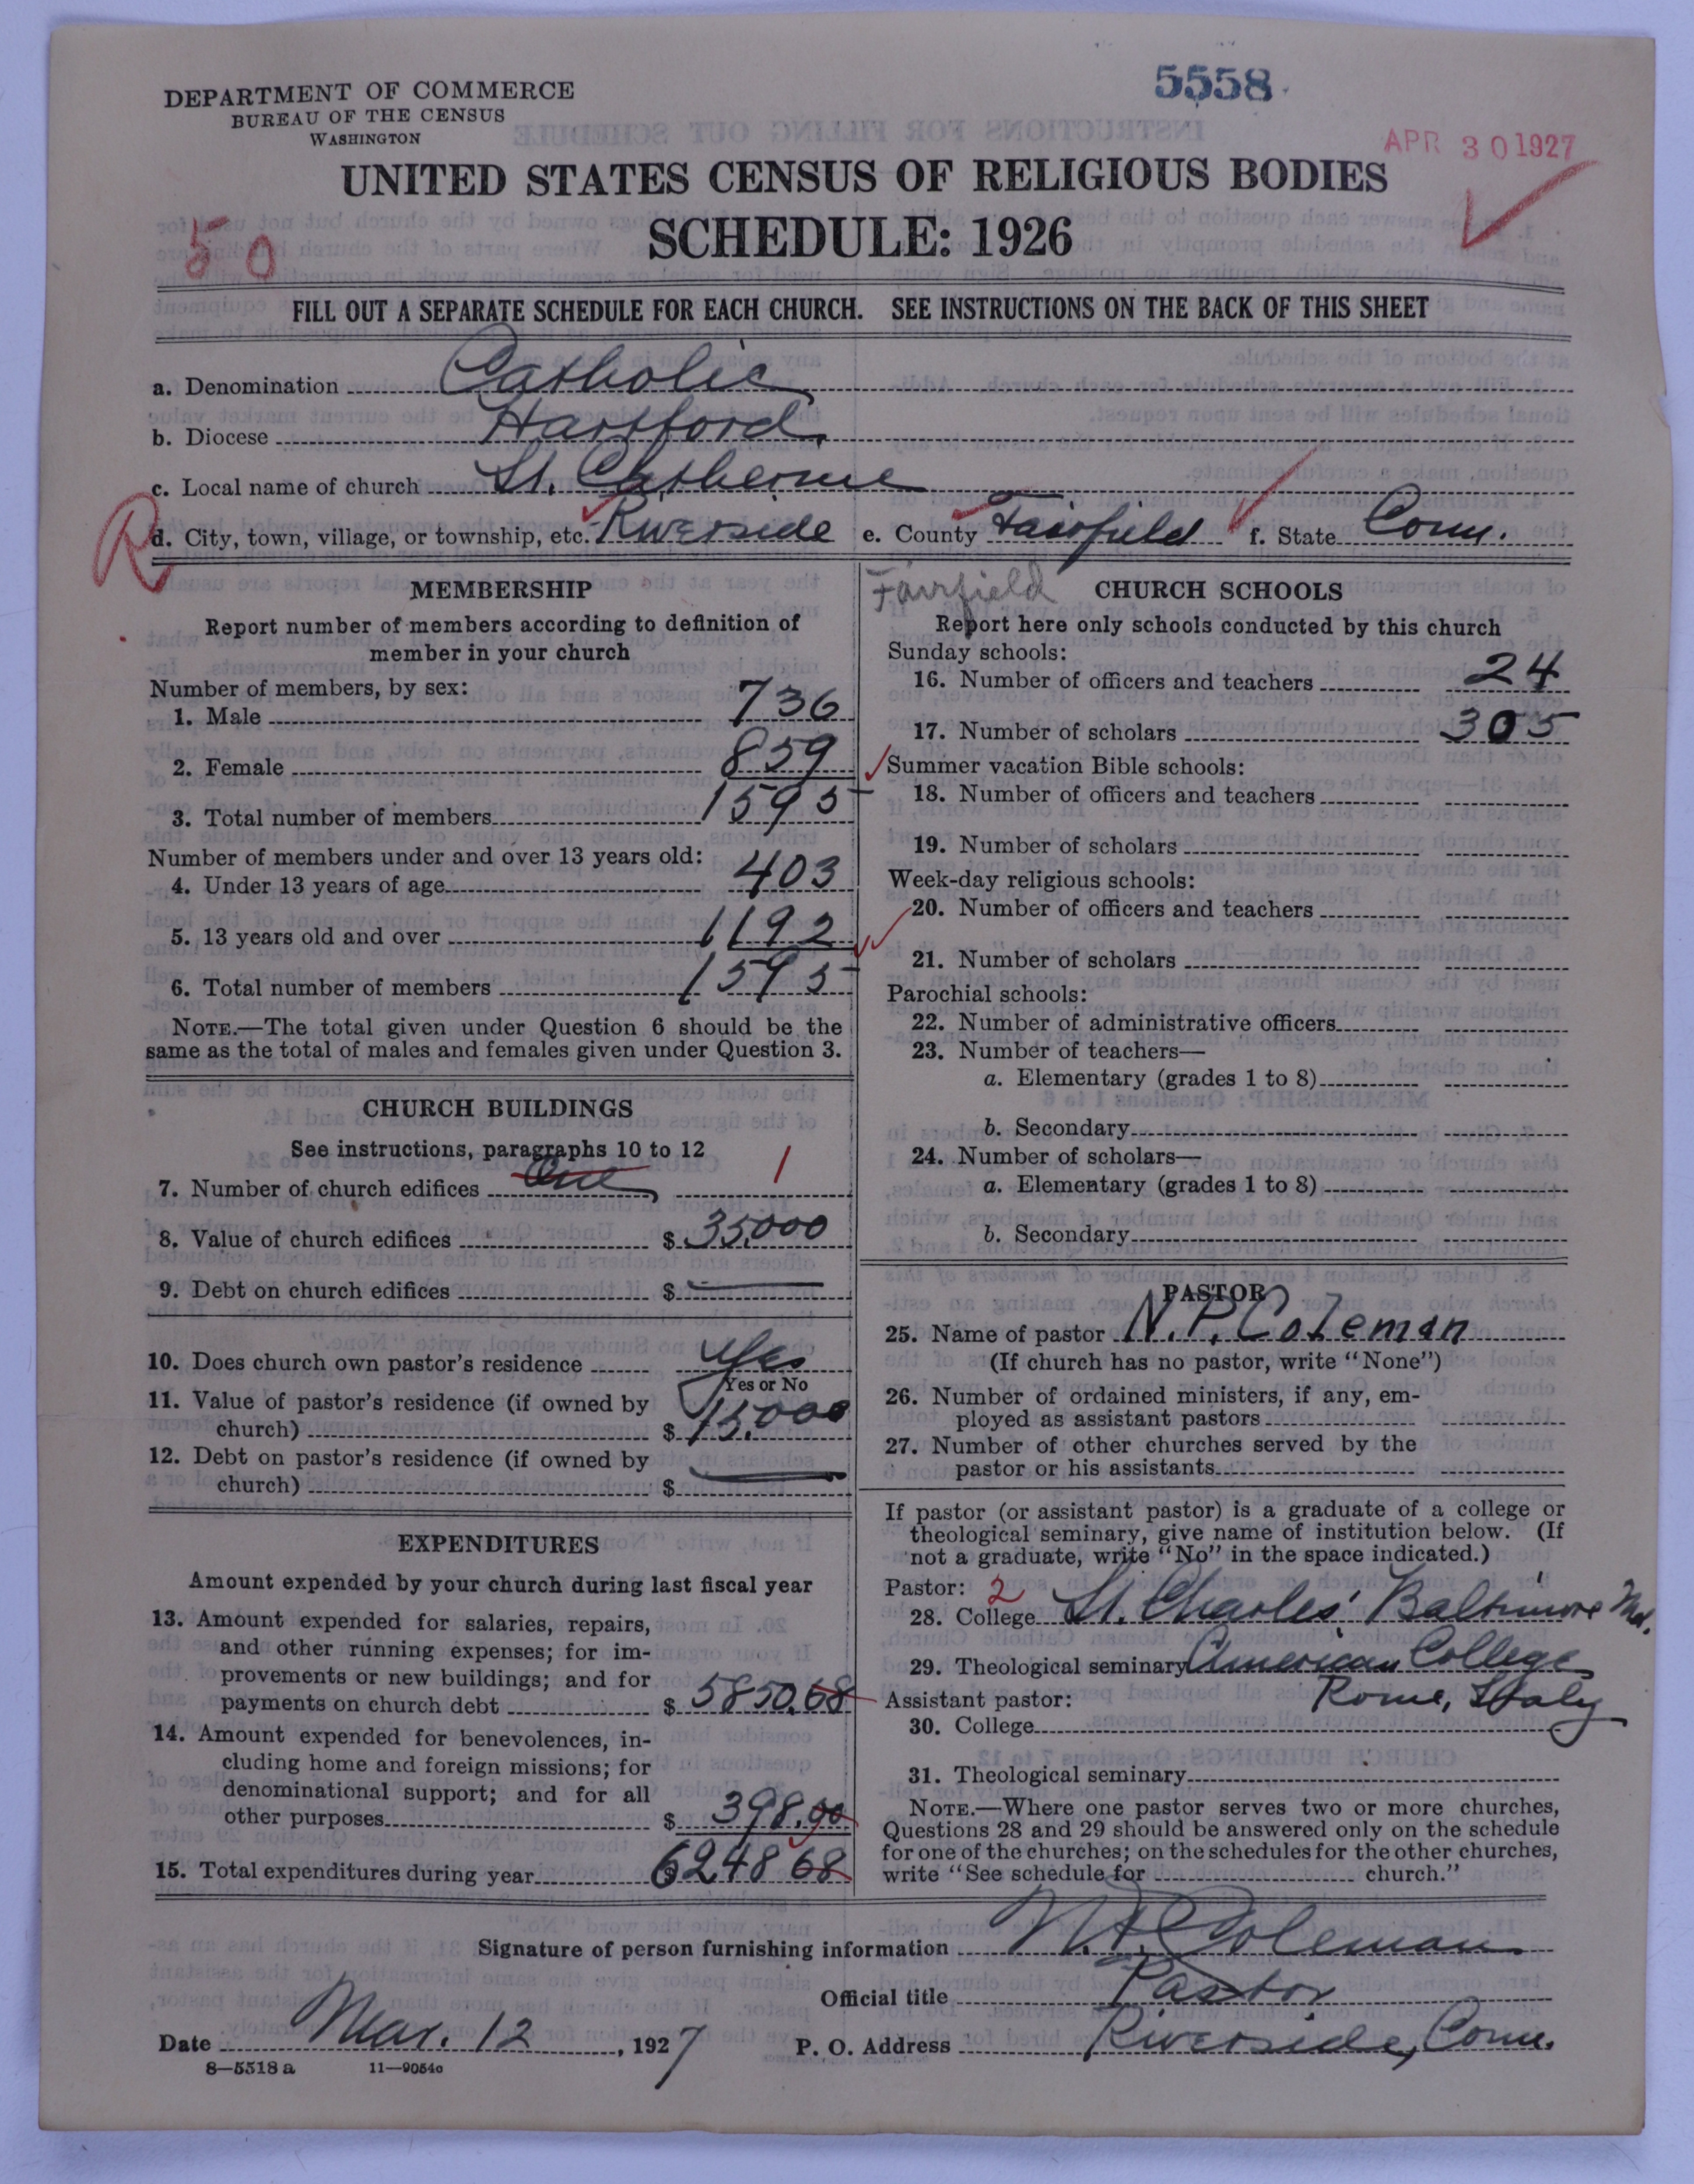 DEPARTMENT OF COMMERCE
BUREAU OF THE CENSUS
WASHINGTON
5558
APR 30 1927
UNITED STATES CENSUS OF RELIGIOUS BODIES
SCHEDULE: 1926
50
FILL OUT A SEPARATE SCHEDULE FOR EACH CHURCH. SEE INSTRUCTIONS ON THE BACK OF THIS SHEET
a. Denomination Catholic
b. Diocese Hartford.
c. Local name of church St. Catherine
R
d. City, town, village, or township, etc. Riverside e. County Fairfield f. State Conn.
MEMBERSHIP
Report number of members according to definition of
member in your church
Number of members, by sex:
1. Male 736
2. Female 859
3. Total number of members 1595
Number of members under and over 13 years old:
4. Under 13 years of age 403
5. 13 years old and over 1192
6. Total number of members 1595
NOTE.—The total given under Question 6 should be the
same as the total of males and females given under Question 3.
CHURCH BUILDINGS
See instructions, paragraphs 10 to 12
7. Number of church edifices One 1
8. Value of church edifices $ 35,000
9. Debt on church edifices $ —
10. Does church own pastor's residence Yes
Yes or No
11. Value of pastor's residence (if owned by
church) $ 15,000
12. Debt on pastor's residence (if owned by
church) $ —
EXPENDITURES
Amount expended by your church during last fiscal year
13. Amount expended for salaries, repairs,
and other running expenses; for im-
provements or new buildings; and for
payments on church debt $ 5850.68
14. Amount expended for benevolences, in-
cluding home and foreign missions; for
denominational support; and for all
other purposes $ 398.00
15. Total expenditures during year $ 6248 68
Fairfield
CHURCH SCHOOLS
Report here only schools conducted by this church
Sunday schools:
16. Number of officers and teachers 24
17. Number of scholars 305
Summer vacation Bible schools:
18. Number of officers and teachers
19. Number of scholars
Week-day religious schools:
20. Number of officers and teachers
21. Number of scholars
Parochial schools:
22. Number of administrative officers
23. Number of teachers—
a. Elementary (grades 1 to 8)
b. Secondary
24. Number of scholars—
a. Elementary (grades 1 to 8)
b. Secondary
PASTOR
25. Name of pastor N. P. Coleman
(If church has no pastor, write "None")
26. Number of ordained ministers, if any, em-
ployed as assistant pastors
27. Number of other churches served by the
pastor or his assistants
If pastor (or assistant pastor) is a graduate of a college or
theological seminary, give name of institution below. (If
not a graduate, write "No" in the space indicated.)
Pastor: 2
28. College St. Charles' Baltimore Md.
29. Theological seminary American College
Assistant pastor: Rome, Italy
30. College
31. Theological seminary
NOTE.—Where one pastor serves two or more churches,
Questions 28 and 29 should be answered only on the schedule
for one of the churches; on the schedules for the other churches,
write "See schedule for church."
Signature of person furnishing information N. P. Coleman
Official title Pastor
Date Mar. 12, 1927 P. O. Address Riverside, Conn.
8—5518 a 11—9054c